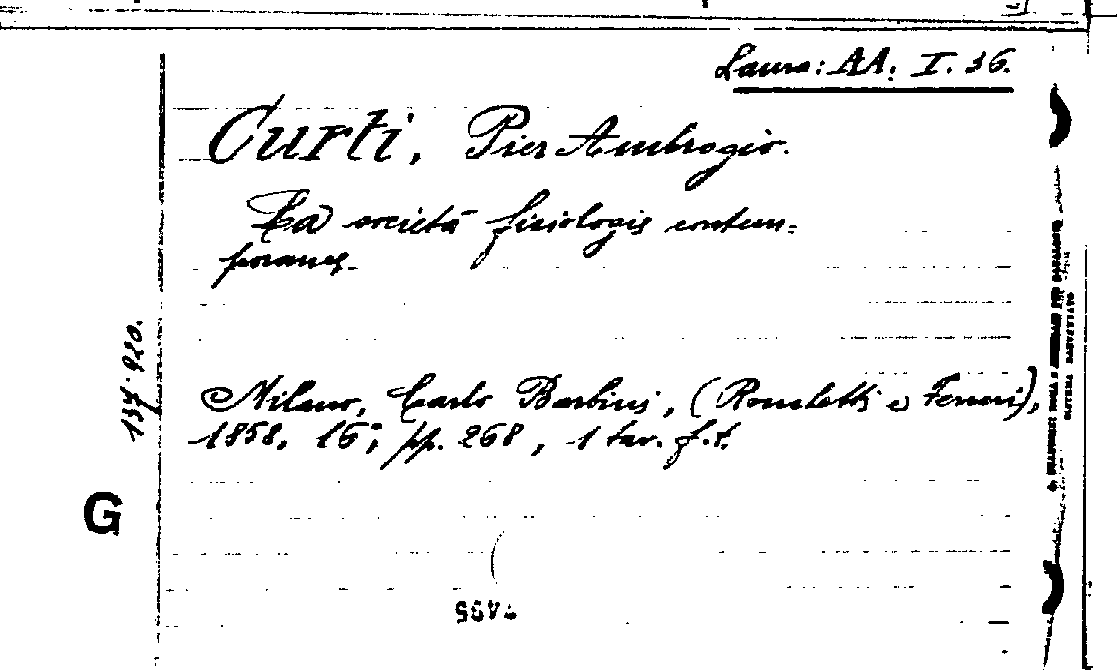 Laura: AA. I. 36.
Curti, Pier Ambrogio.
La società fisiologia contem=
poranea.
Milano, Carlo Barbini, (Ronchetti e Ferreri),
1858. 16°, pp. 268, 1 tav. f.t.
137.920.
G